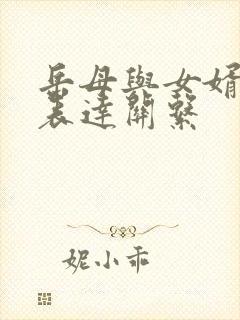 岳母與女婿
表達關繫
妮小乖